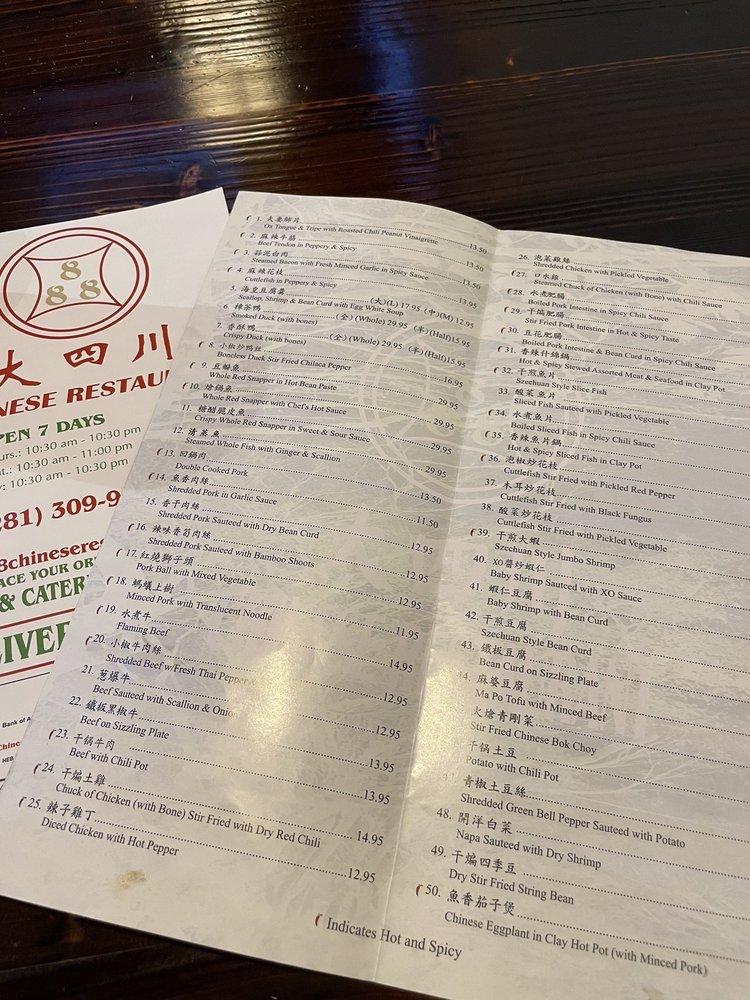 8
8 8
大四川
NESE RESTAU
PEN 7 DAYS
urs.: 10:30 am - 10:30 pm
at.: 10:30 am - 11:00 pm
y: 10:30 am - 10:30 pm
281) 309-9
8chineseres
ACE YOUR OR
& CATER
LIVER
Bank of A
HEB
1. 夫妻肺片
Ox Tongue & Tripe with Roasted Chili Peanut Vinaigrette 13.50
2. 麻辣牛筋
Beef Tendon in Peppery & Spicy 13.50
3. 蒜泥白肉
Steamed Bacon with Fresh Minced Garlic in Spicy Sauce 13.50
4. 麻辣花枝
Cuttlefish in Peppery & Spicy 13.95
5. 海皇豆腐羹 (大)(L) 17.95 (中)(M) 12.95
Scallop, Shrimp & Bean Curd with Egg White Soup
6. 樟茶鴨 (全) (Whole) 29.95 (半)(Half)15.95
Smoked Duck (with bones)
7. 香酥鴨 (全) (Whole) 29.95 (半)(Half)15.95
Crispy Duck (with bones)
8. 小椒炒鴨絲 16.95
Boneless Duck Stir Fried Chilaca Pepper
9. 豆瓣魚 29.95
Whole Red Snapper in Hot Bean Paste
10. 熗鍋魚 29.95
Whole Red Snapper with Chef's Hot Sauce
11. 糖醋脆皮魚 29.95
Crispy Whole Red Snapper in Sweet & Sour Sauce
12. 清蒸魚 29.95
Steamed Whole Fish with Ginger & Scallion
13. 回鍋肉 13.50
Double Cooked Pork
14. 魚香肉絲 11.50
Shredded Pork in Garlic Sauce
15. 香干肉絲 12.95
Shredded Pork Sauteed with Dry Bean Curd
16. 辣味香荀肉絲 12.95
Shredded Pork Sauteed with Bamboo Shoots
17. 紅燒獅子頭 12.95
Pork Ball with Mixed Vegetable
18. 螞蟻上樹 11.95
Minced Pork with Translucent Noodle
19. 水煮牛 14.95
Flaming Beef
20. 小椒牛肉絲 12.95
Shredded Beef w/Fresh Thai Pepper
21. 蔥爆牛 12.95
Beef Sauteed with Scallion & Onion
22. 鐵板黑椒牛 13.95
Beef on Sizzling Plate
23. 干鍋牛肉 13.95
Beef with Chili Pot
24. 干煸土雞 14.95
Chuck of Chicken (with Bone) Stir Fried with Dry Red Chili
25. 辣子雞丁 12.95
Diced Chicken with Hot Pepper
26. 泡菜雞絲
Shredded Chicken with Pickled Vegetable
27. 口水雞
Steamed Chuck of Chicken (with Bone) with Chili Sauce
28. 水煮肥腸
Boiled Pork Intestine in Spicy Chili Sauce
29. 干煸肥腸
Stir Fried Pork Intestine in Hot & Spicy Taste
30. 豆花肥腸
Boiled Pork Intestine & Bean Curd in Spicy Chili Sauce
31. 香辣什錦鍋
Hot & Spicy Stewed Assorted Meat & Seafood in Clay Pot
32. 干煎魚片
Szechuan Style Slice Fish
33. 酸菜魚片
Sliced Fish Sauteed with Pickled Vegetable
34. 水煮魚片
Boiled Sliced Fish in Spicy Chili Sauce
35. 香辣魚片鍋
Hot & Spicy Sliced Fish in Clay Pot
36. 泡椒炒花枝
Cuttlefish Stir Fried with Pickled Red Pepper
37. 木耳炒花枝
Cuttlefish Stir Fried with Black Fungus
38. 酸菜炒花枝
Cuttlefish Stir Fried with Pickled Vegetable
39. 干煎大蝦
Szechuan Style Jumbo Shrimp
40. XO醬炒蝦仁
Baby Shrimp Sauteed with XO Sauce
41. 蝦仁豆腐
Baby Shrimp with Bean Curd
42. 干煎豆腐
Szechuan Style Bean Curd
43. 鐵板豆腐
Bean Curd on Sizzling Plate
44. 麻婆豆腐
Ma Po Tofu with Minced Beef
火熗青剛菜
Stir Fried Chinese Bok Choy
干锅土豆
Potato with Chili Pot
青椒土豆絲
Shredded Green Bell Pepper Sauteed with Potato
48. 開洋白菜
Napa Sauteed with Dry Shrimp
49. 干煸四季豆
Dry Stir Fried String Bean
50. 魚香茄子煲
Chinese Eggplant in Clay Hot Pot (with Minced Pork)
Indicates Hot and Spicy